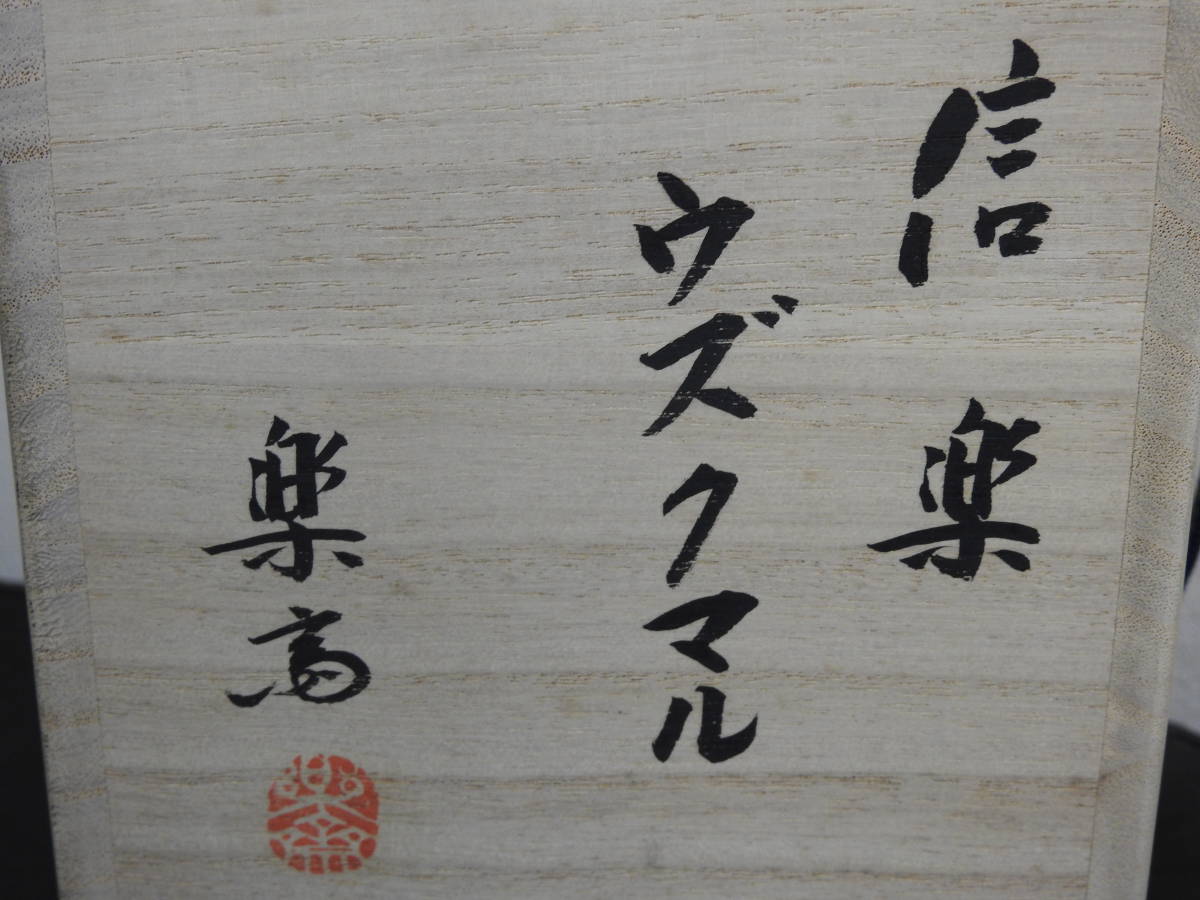 信楽
ウズクマル
楽斎